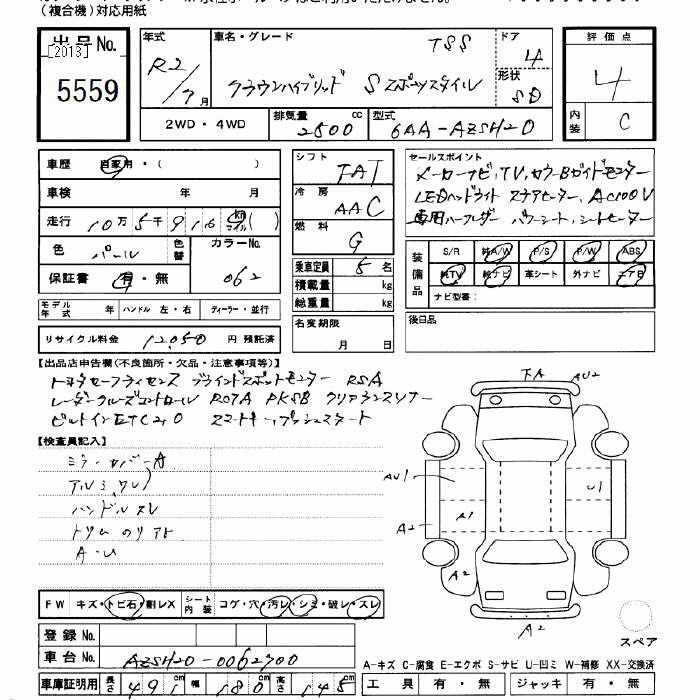 (複合機)対応用紙
出品No.
[2013]
5559
年式
R2/7月
車名・グレード
TSS
クラウンハイブリッド Sスポーツスタイル
ドア
4
形状
SD
2WD・4WD
排気量
2500
cc
型式
6AA-AZSH20
評価点
4
内装
C
車歴
自家用・( )
車検
年 月
走行
10万5千916
km
マイル
( )
色
パール
色替
カラーNo.
062
保証書
有・無
シフト
FAT
冷房
AAC
燃料
G
乗車定員
5名
積載量
kg
総重量
kg
名変期限
月 日
セールスポイント
メーカーナビ,TV,カラーBガイドモニター
LEDヘッドライト ステアヒーター,AC100V
専用ハーフレザー パワーシート,シートヒーター
装備品
S/R
純A/W
P/S
P/W
ABS
純TV
純ナビ
革シート
外ナビ
エアB
ナビ型番:
後日品
モデル年式
年
ハンドル
左・右
ディーラー・並行
リサイクル料金
12,050
円
預託済
【出品店申告欄(不良箇所・欠品・注意事項等)】
トヨタセーフティセンス ブラインドスポットモニター RSA
レーダークルーズコントロール ROTA PKSB クリアランスソナー
ビルトインETC2,0 スマートキー プッシュスタート
【検査員記入】
ミラーカバーA
アルミ
ハンドルスレ
A・U
FW
キズ・トビ石・割レX
シート内装
コゲ・穴・汚レ・シミ・破レ・スレ
登録No.
車台No.
AZSH20-0062700
車庫証明用
長さ
491
cm
幅
180
cm
高さ
145
cm
A
AU2
AU1
A2
A1
U1
A2
A2
スペア
A-キズ C-腐食 E-エクボ S-サビ U-凹ミ W-補修 XX-交換済
工具
有・無
ジャッキ
有・無